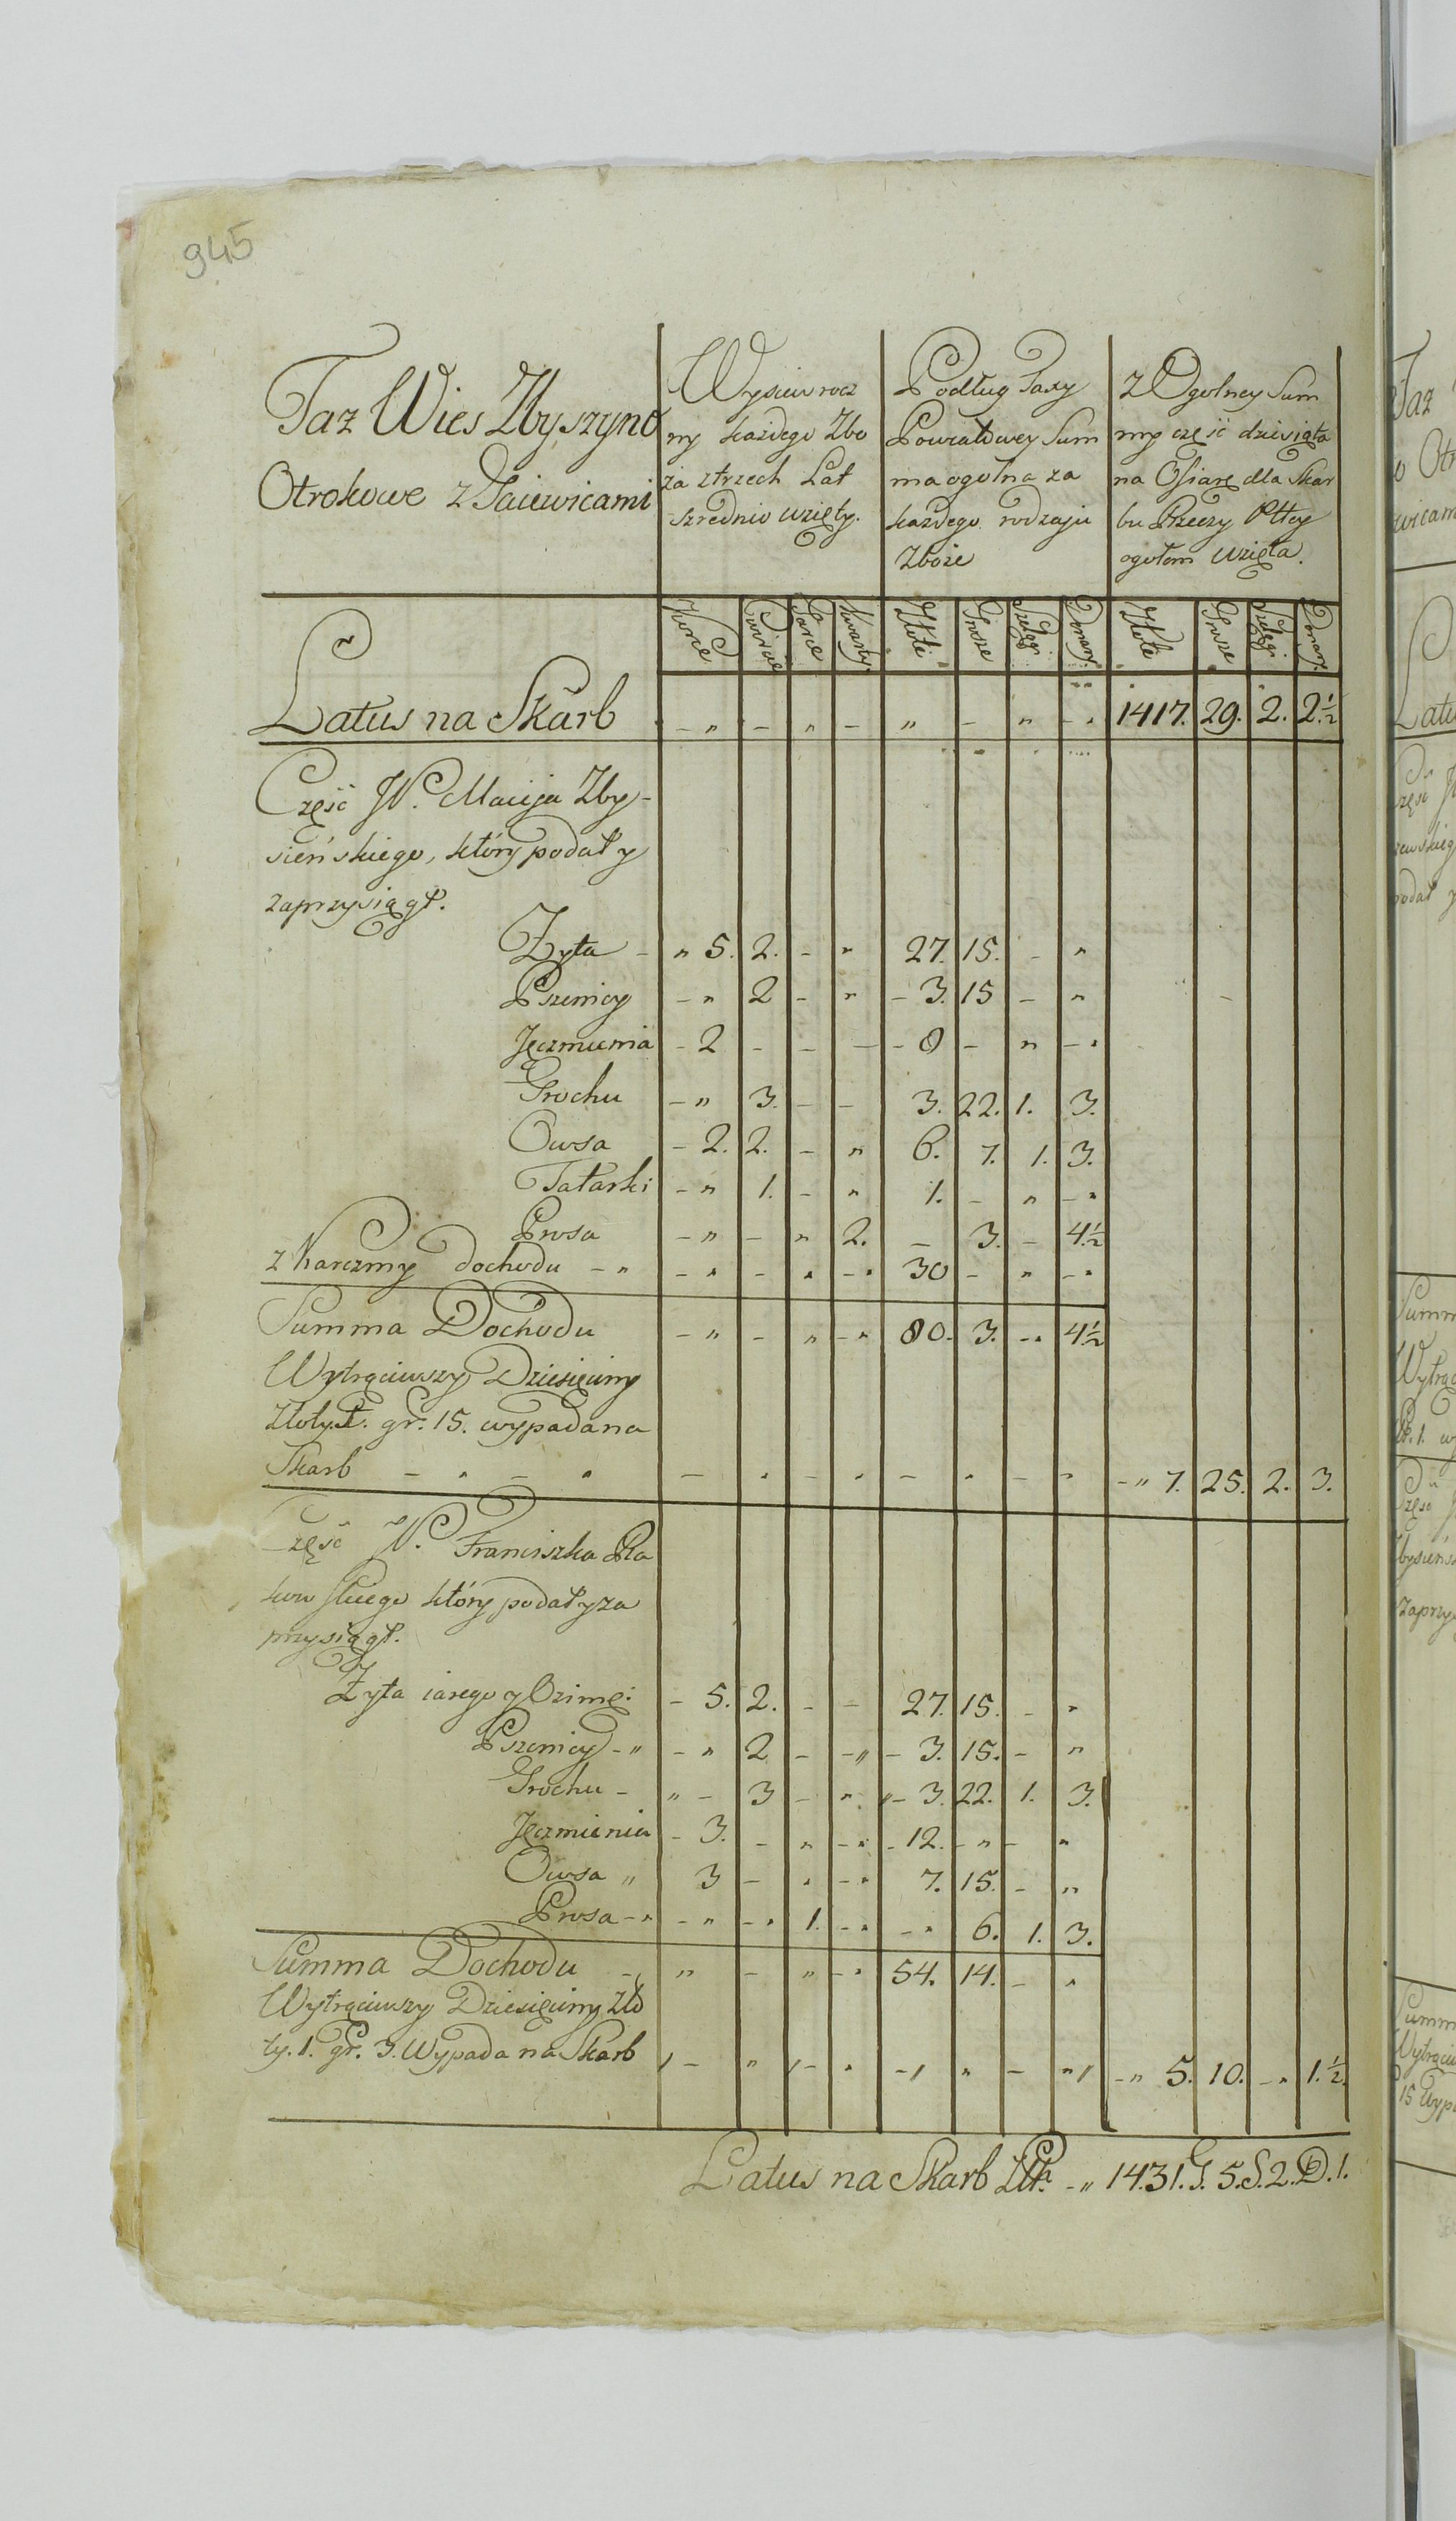 945
Taz Wies Zbyszyno
Otrokowe z Isaiewicami
Wysiew rocz
ny każdego Zbo
ża ztrzech Lat
szrednio wzięty.
Podług Taxy
Powiatowey Sum
ma ogolna za
każdego rodzaju
Zboże
Z Ogolney Sum
my część dziesiąta
na Ofiarę dla Skar
bu Rzeczy Pltey
ogołem wzięta.
Korce Cwircie Garce Kwarty. Złote Grosze Szelągi Denary. Złote Grosze Szelągi Denary.
Latus na Skarb - „ - „ - „ - „ - „ 1417. 29. 2. 2 1/2
Część JW. Macieja Zby-
sieńskiego, który podał y
zaprzysiągł.
Zyta - „ 5. 2. - „ 27. 15. - „
Pszenicy - „ 2 - „ - 3. 15 - „
Jęczmienia - 2 - - - - 8 - „ - „
Grochu - „ 3. - - 3. 22. 1. 3.
Owsa - 2. 2. - „ 6. 7. 1. 3.
Tatarki - „ 1. - „ 1. - „ - „
Prosa - „ - „ 2. - 3. - 4 1/2
z Karczmy dochodu - „ - „ - „ - „ 30 - „ - „
Summa Dochodu - „ - „ - „ 80. 3. - „ 4 1/2
Wytrąciwszy Dziesięciny
Złoty.1. gr. 15. wypada na
Skarb - „ - „ - „ - „ - „ - „ - „ 7. 25. 2. 3.
Część W. Franciszka Ra
kowskiego który podał y za
przysiągł.
Zyta iarego y Ozime: - 5. 2. - - 27. 15. - „
Pszenicy - „ - „ 2 - - „ - 3. 15. - „
Grochu - „ - 3 - „ „ - 3. 22. 1. 3.
Jęczmienia - 3. - „ - „ - 12. - „ - „
Owsa „ 3 - „ - „ 7. 15. - „
Prosa - „ - „ - „ 1. - „ - „ 6. 1. 3.
Summa Dochodu - „ „ - „ - „ 54. 14. - „
Wytrąciwszy Dziesięciny Zło
ty. 1. gr. 3. Wypada na Skarb - „ - „ - „ - „ - „ 5. 10. - „ 1. 1/2.
Latus na Skarb Złt. - „ 1431. G. 5. S. 2. D. 1.